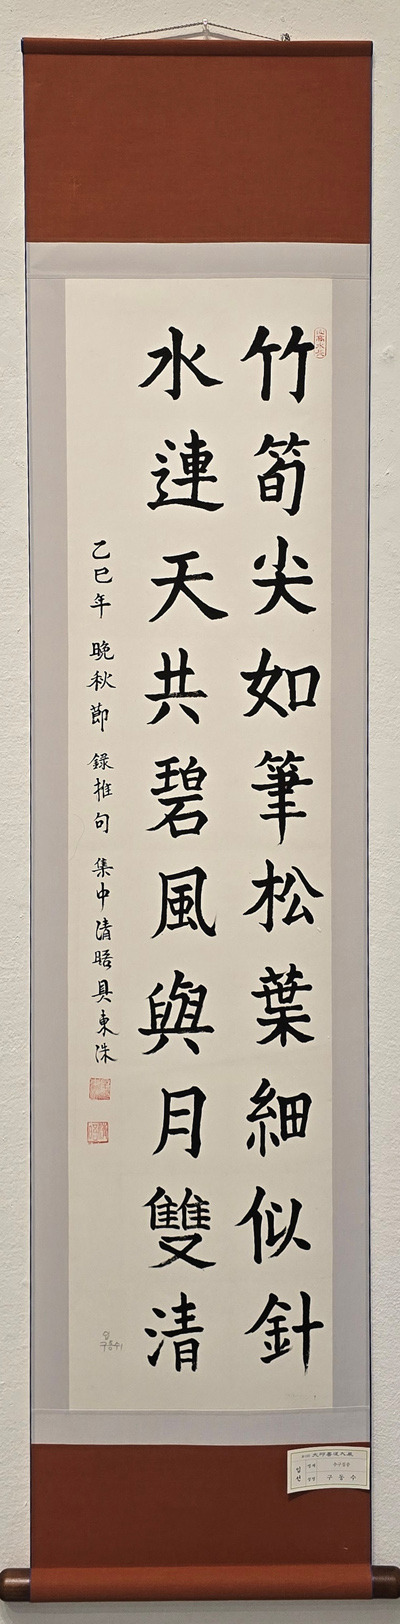 竹筍尖如筆松葉細似針
水連天共碧風與月雙清
乙巳年 晚秋節 錄推句 集中清晤具東洙
구동수
입선
구동수